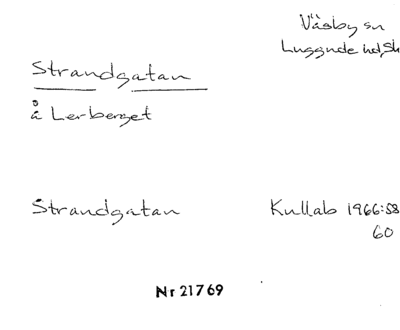 Väsby sn
Luggude hd, Sk
Strandgatan
å Lerberget
Strandgatan
Kullab 1966:58
60
Nr 21769